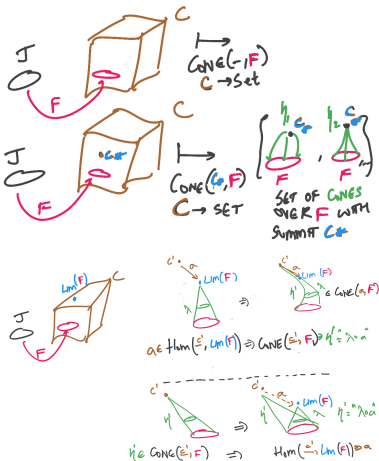 C
J
F
CONE(-,F)
C → Set
C
J
F
C*
CONE(C*,F)
C → SET
η1 C*
η2 C*
F , F ...
SET OF CONES
OVER F WITH
SUMMIT C*
Lim(F)
C
J
F
c' a
Lim(F)
λ
⇒
c' a
Lim(F)
η' λ
∈ CONE(a,F)
a ∈ Hom(c', Lim(F)) ⇒ CONE(c', F) ∋ η' "=" λ∘a
c'
η'
⇒
c' a
Lim(F)
η' λ
η' "=" "λ∘a"
η' ∈ CONE(c', F) ⇒ Hom(c', Lim(F)) ∋ a